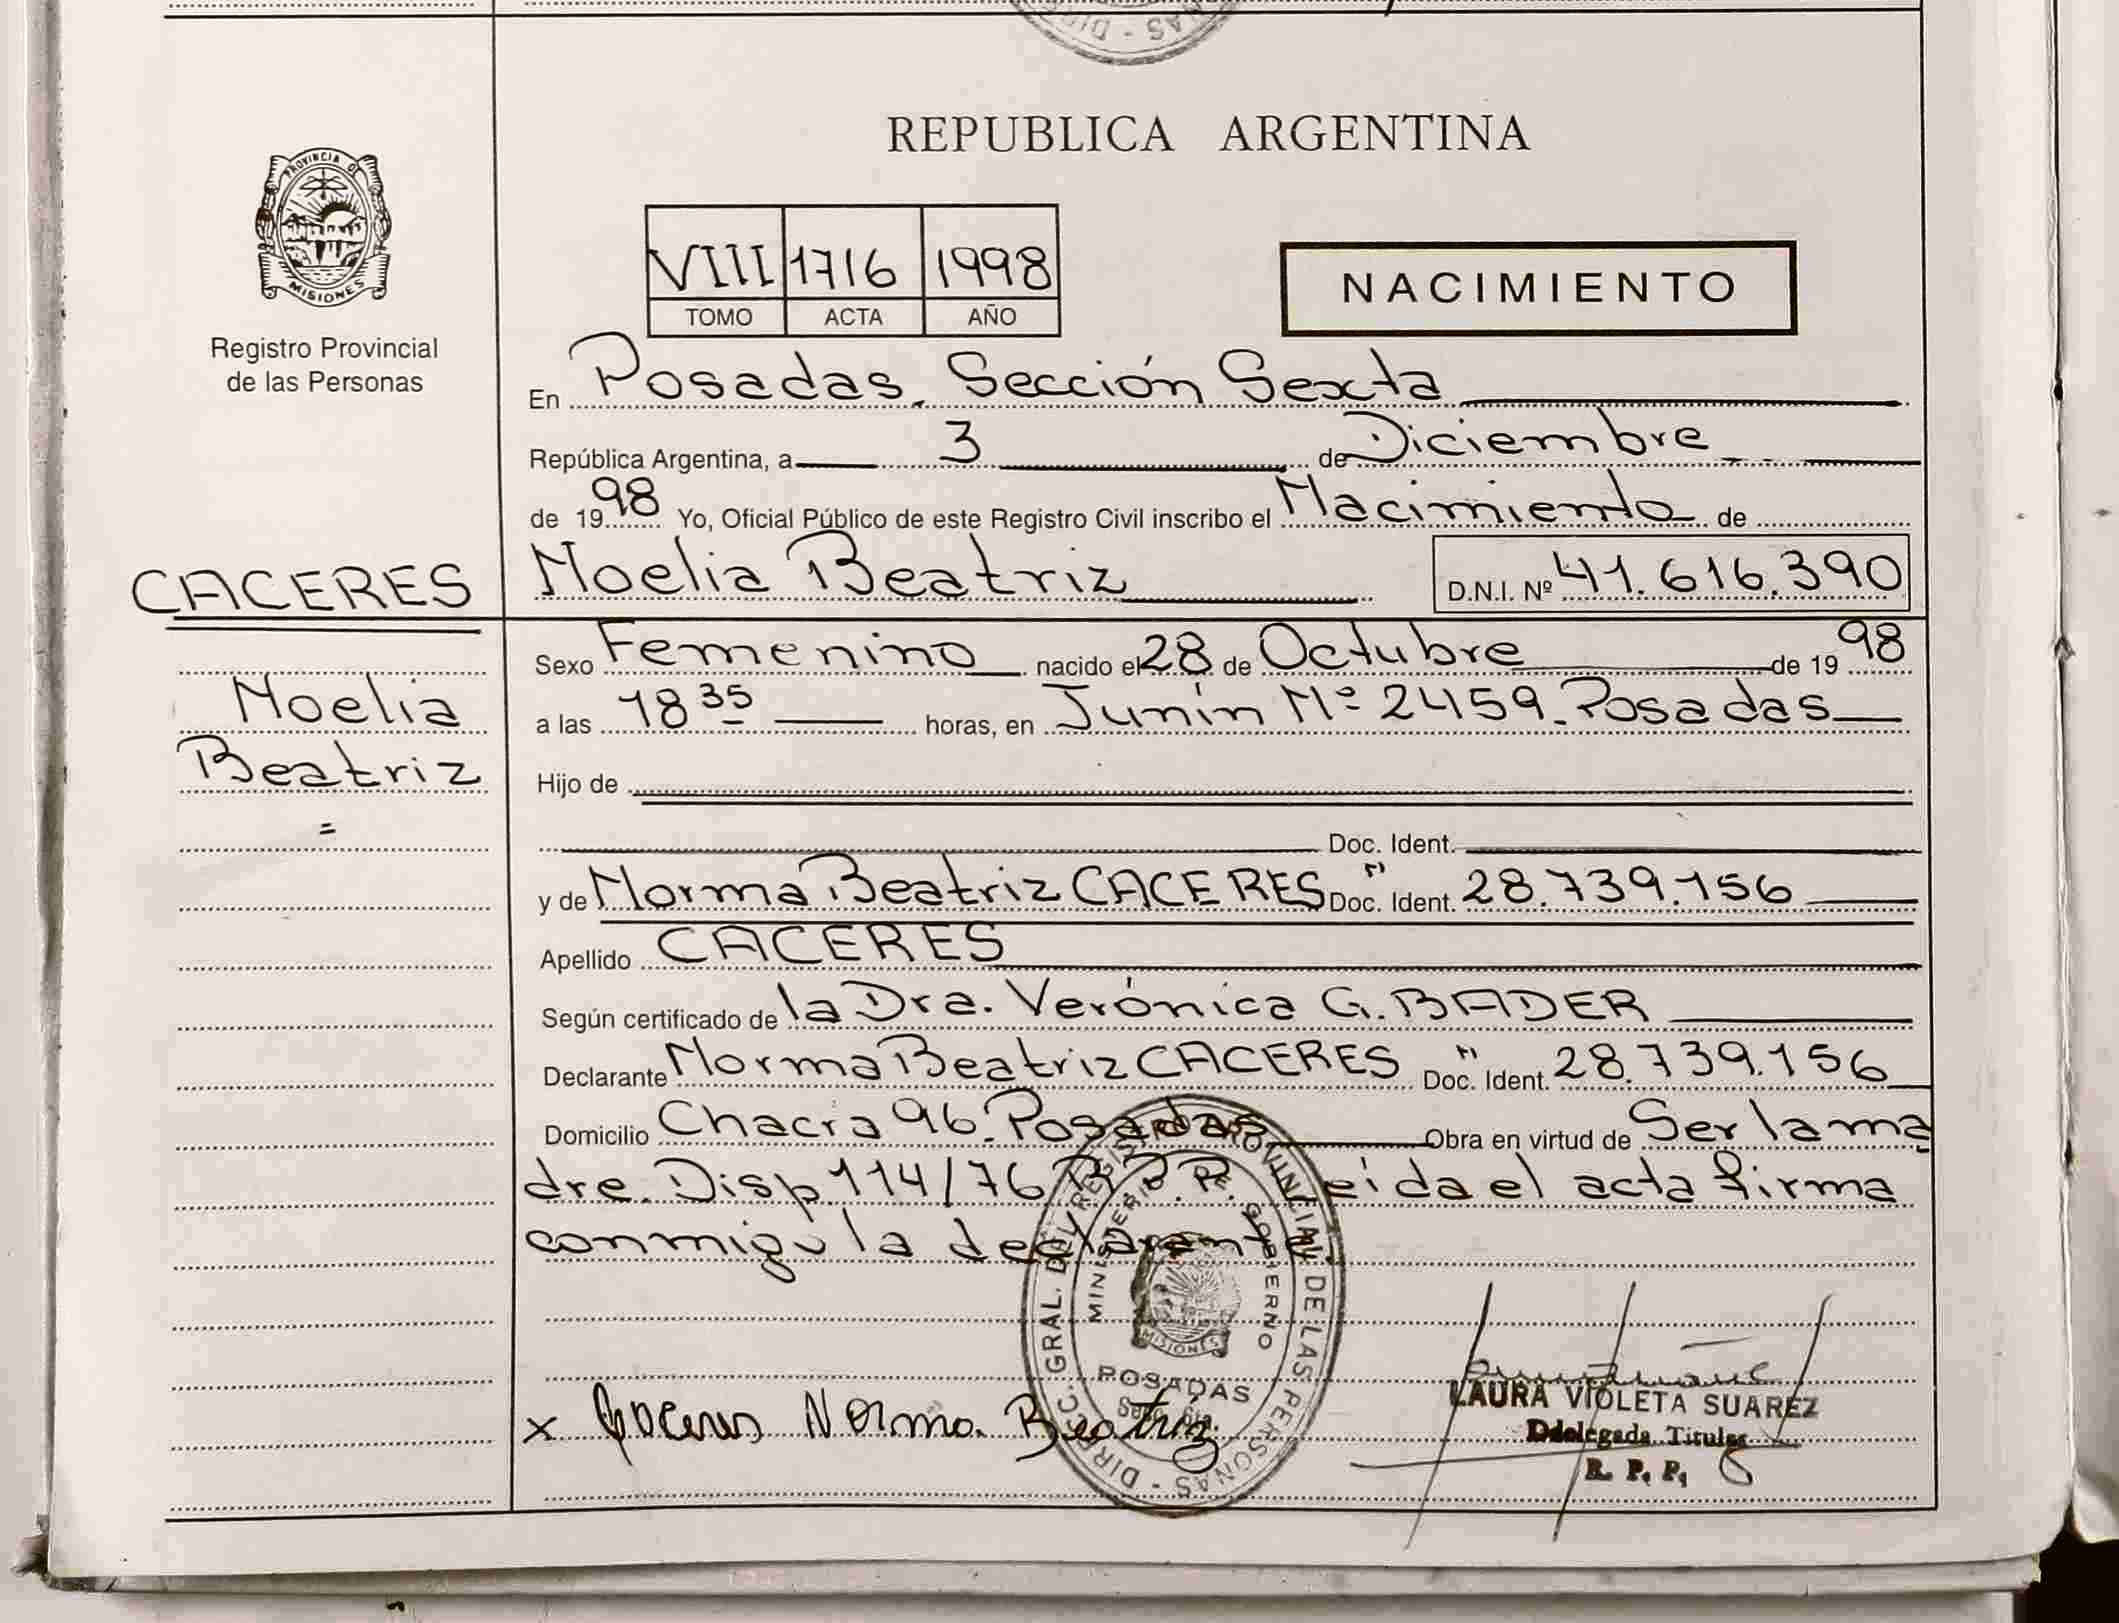 DIREC - NAS
REPUBLICA ARGENTINA
PROVINCIA DE
MISIONES
Registro Provincial
de las Personas
VIII 1716 1998
TOMO ACTA AÑO
NACIMIENTO
En Posadas. Sección Sexta
República Argentina, a 3 de Diciembre
de 1998 Yo, Oficial Público de este Registro Civil inscribo el Nacimiento de
CACERES Noelia Beatriz D.N.I. Nº 41.616.390
Sexo Femenino nacido el 28 de Octubre de 1998
Noelia
a las 18 35 horas, en Junín Nº 2459. Posadas
Beatriz
Hijo de
=
Doc. Ident.
y de Norma Beatriz CACERES Doc. Ident. " 28.739.156
Apellido CACERES
Según certificado de la Dra. Verónica G. BADER
Declarante Norma Beatriz CACERES Doc. Ident. " 28.739.156
Domicilio Chacra 96. Posadas Obra en virtud de Ser la ma
dre. Disp 114/76 R.P.P. Leída el acta firma
conmigo la declarante
DIRECC. GRAL. DEL REGISTRO PROVINCIAL DE LAS PERSONAS -
MINISTERIO DE GOBIERNO
MISIONES
POSADAS
Secc. 6ta.
x Caceres Norma Beatriz
LAURA VIOLETA SUAREZ
Ddelegada Titular
R. P. P.